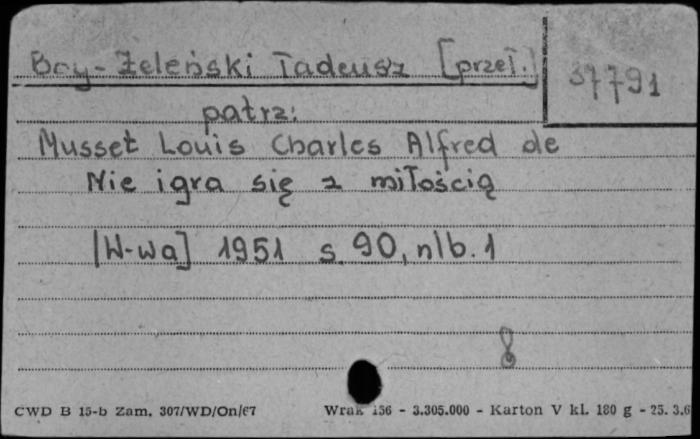 Boy-Żeleński Tadeusz [przeł.]
37791
patrz:
Musset Louis Charles Alfred de
Nie igra się z miłością
[W-wa] 1951 s. 90, nlb. 1
8
CWD B 15-b Zam. 307/WD/On/67 Wrak 156 - 3.305.000 - Karton V kl. 180 g - 25. 3.6